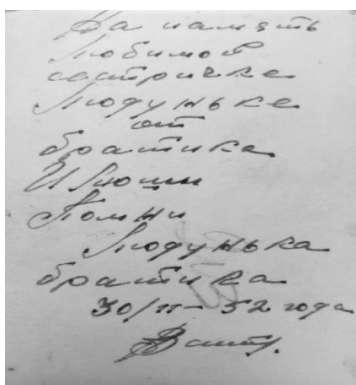 На память
Любимой
састричке
Людуньке
от
братика
Илюши
Помни
Людунька
братика
30/II - 52 года